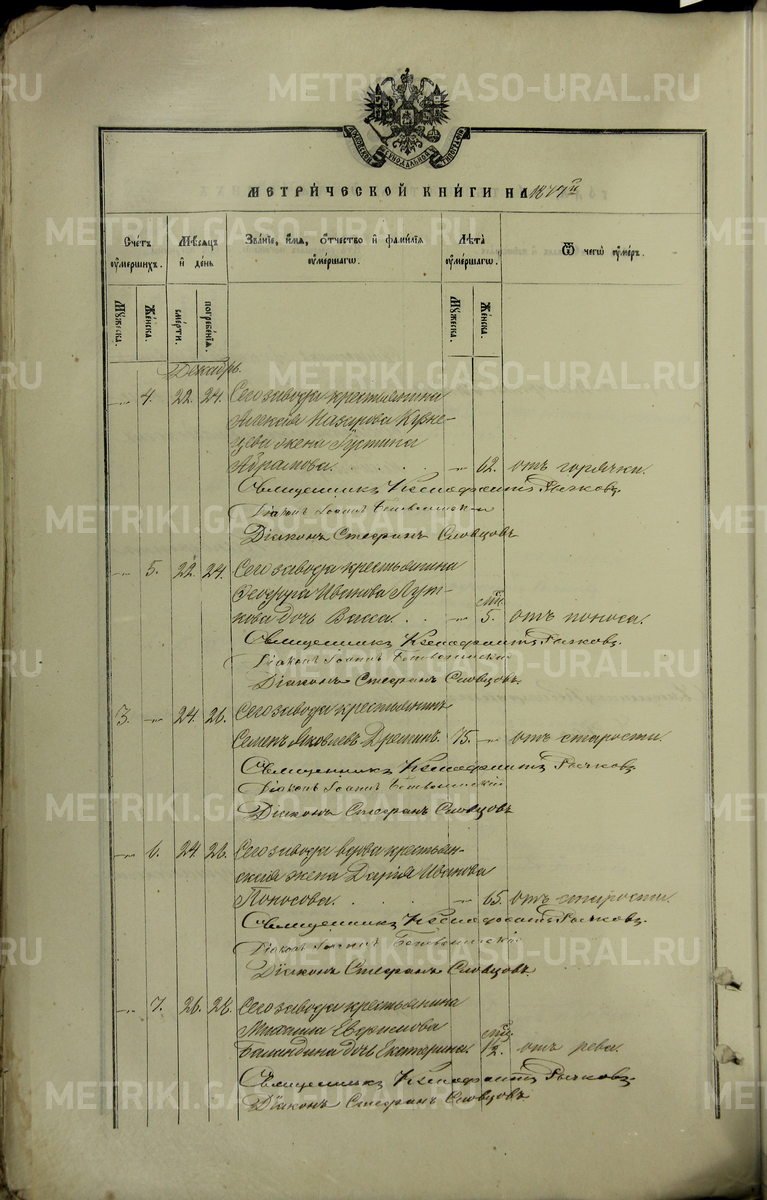 METRIKI.GASO-URAL.RU
МЕТРИЧЕСКОЙ КНИГИ НА 1877й
Счетъ ᲂумершихъ.
Мѣсяцъ и день
Званіе, имя, отчество и фамилія ᲂумершагѡ.
Лѣта ᲂумершагѡ.
Ѿ чегѡ ᲂумеръ.
Мужеска.
Женска.
смерти.
погребенія.
Мужеска.
Женска.
Декабрь.
„ 4. 22. 24. Сего завода крестьянина
Алексѣя Назарова Кузне-
цова жена Іустина
Абрамова. „ 62. отъ горячки.
Священникъ Ксенофонтъ Рычковъ.
Діаконъ Іоаннъ
Діаконъ Стефанъ Словцовъ
„ 5. 22. 24. Сего завода крестьянина
Ѳеодора Иванова Лут-
кова дочь Васса. „ 5. мѣс. отъ поноса.
Священникъ Ксенофонтъ Рычковъ.
Діаконъ Іоаннъ
Діаконъ Стефанъ Словцовъ.
3. „ 24. 26. Сего завода крестьянинъ
Семенъ Яковлевъ 75. „ отъ старости.
Священникъ Ксенофонтъ Рычковъ
Діаконъ Іоаннъ
Діаконъ Стефанъ Словцовъ
„ 6. 24. 26. Сего завода вдова крестьян-
ская жена Дарія Иванова
Поносова. „ 65. отъ старости.
Священникъ Ксенофонтъ Рычковъ.
Діаконъ Іоаннъ
Діаконъ Стефанъ Словцовъ.
„ 7. 26. 28. Сего завода крестьянина
Михаила Евфимова
Баландина дочь Екатерина. мѣс. отъ рева.
Священникъ Ксенофонтъ Рычковъ.
Діаконъ Стефанъ Словцовъ